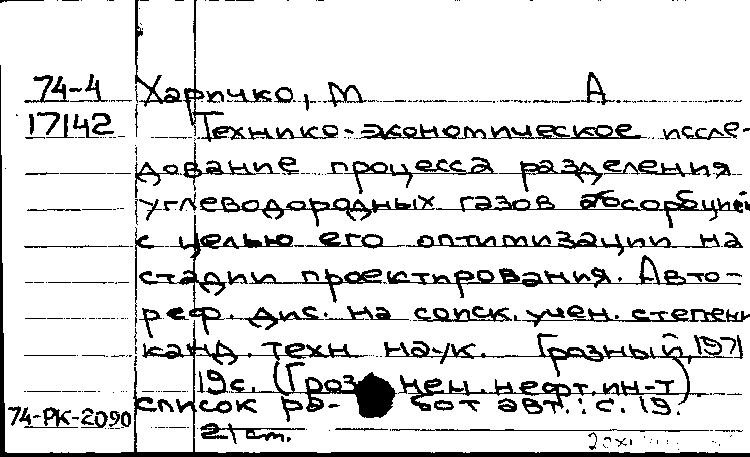 74-4 Харичко, М А.
17142 Технико-экономическое иссле-
дование процесса разделения
углеводородных газов абсорбцией
с целью его оптимизации на
стадии проектирования. Авто-
реф. дис. на соиск. учен. степени
канд. техн наук. Грозный, 1971
19с. (Гроз нен. нефт. ин-т)
74-РК-2090 список ра- бот авт.: с. 19.
21 cm.